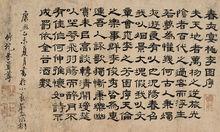 春夜宴桃李園序
夫天地者萬物之逆旅光
陰者百代之過客而浮生
若夢為懽幾何古人秉燭
夜遊良有以也況陽春召
我以煙景大塊假我以文
章會桃李之芳園序天倫
之樂事群季俊秀皆為惠
連吾人詠歌獨慚康樂幽
賞未已高談轉清開瓊筵
以坐花飛羽觴而醉月不
有佳作何伸雅懷如詩不
成罰依金谷酒數
康熙乙未夏月